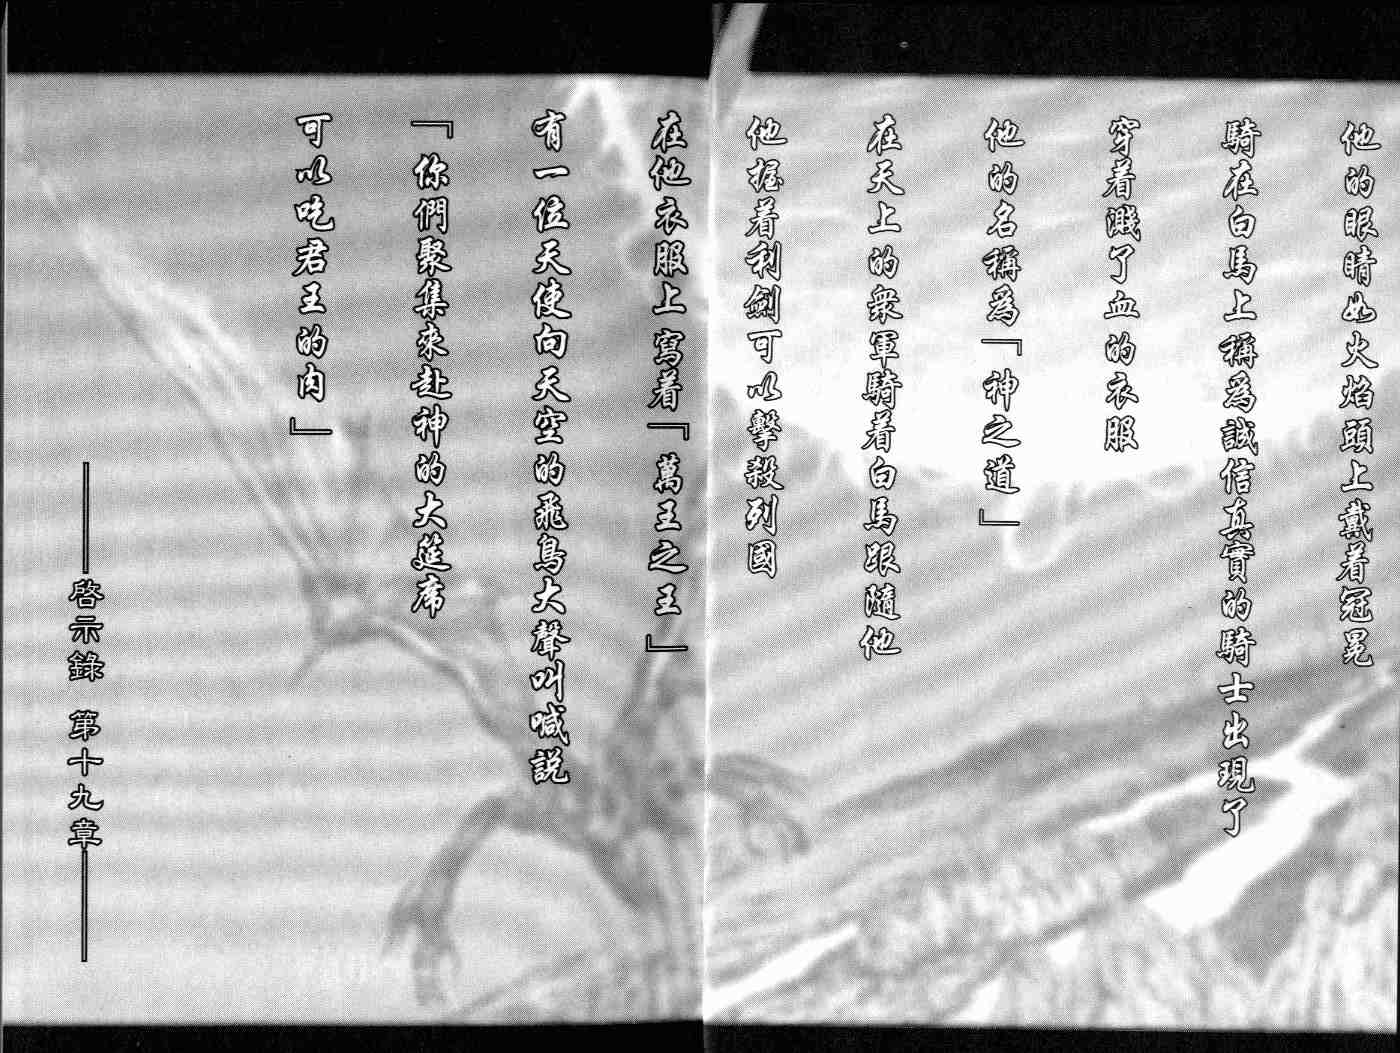 他的眼睛如火焰頭上戴着冠冕
騎在白馬上稱爲誠信真實的騎士出現了
穿着濺了血的衣服
他的名稱爲『神之道』
在天上的衆軍騎着白馬跟隨他
他握着利劍可以擊殺列國
在他衣服上寫着『萬王之王』
有一位天使向天空的飛鳥大聲叫喊説
『你們聚集來赴神的大筵席
可以吃君王的肉』
——啓示錄 第十九章——